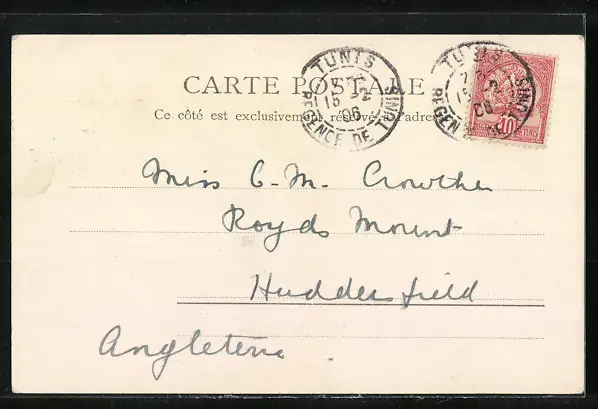 CARTE POSTALE
Ce côté est exclusivement réservé à l'adresse
TUNIS
15 -2
06
REGENCE DE TUNIS
TUNIS
15 -2
06
REGENCE DE TUNIS
10
Miss C. M. Crowther
Royds Mount
Huddersfield
Angleterre